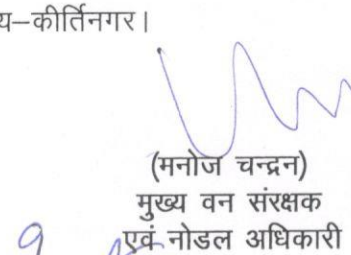 य–कीर्तिनगर।
(मनोज चन्द्रन)
मुख्य वन संरक्षक
एवं नोडल अधिकारी